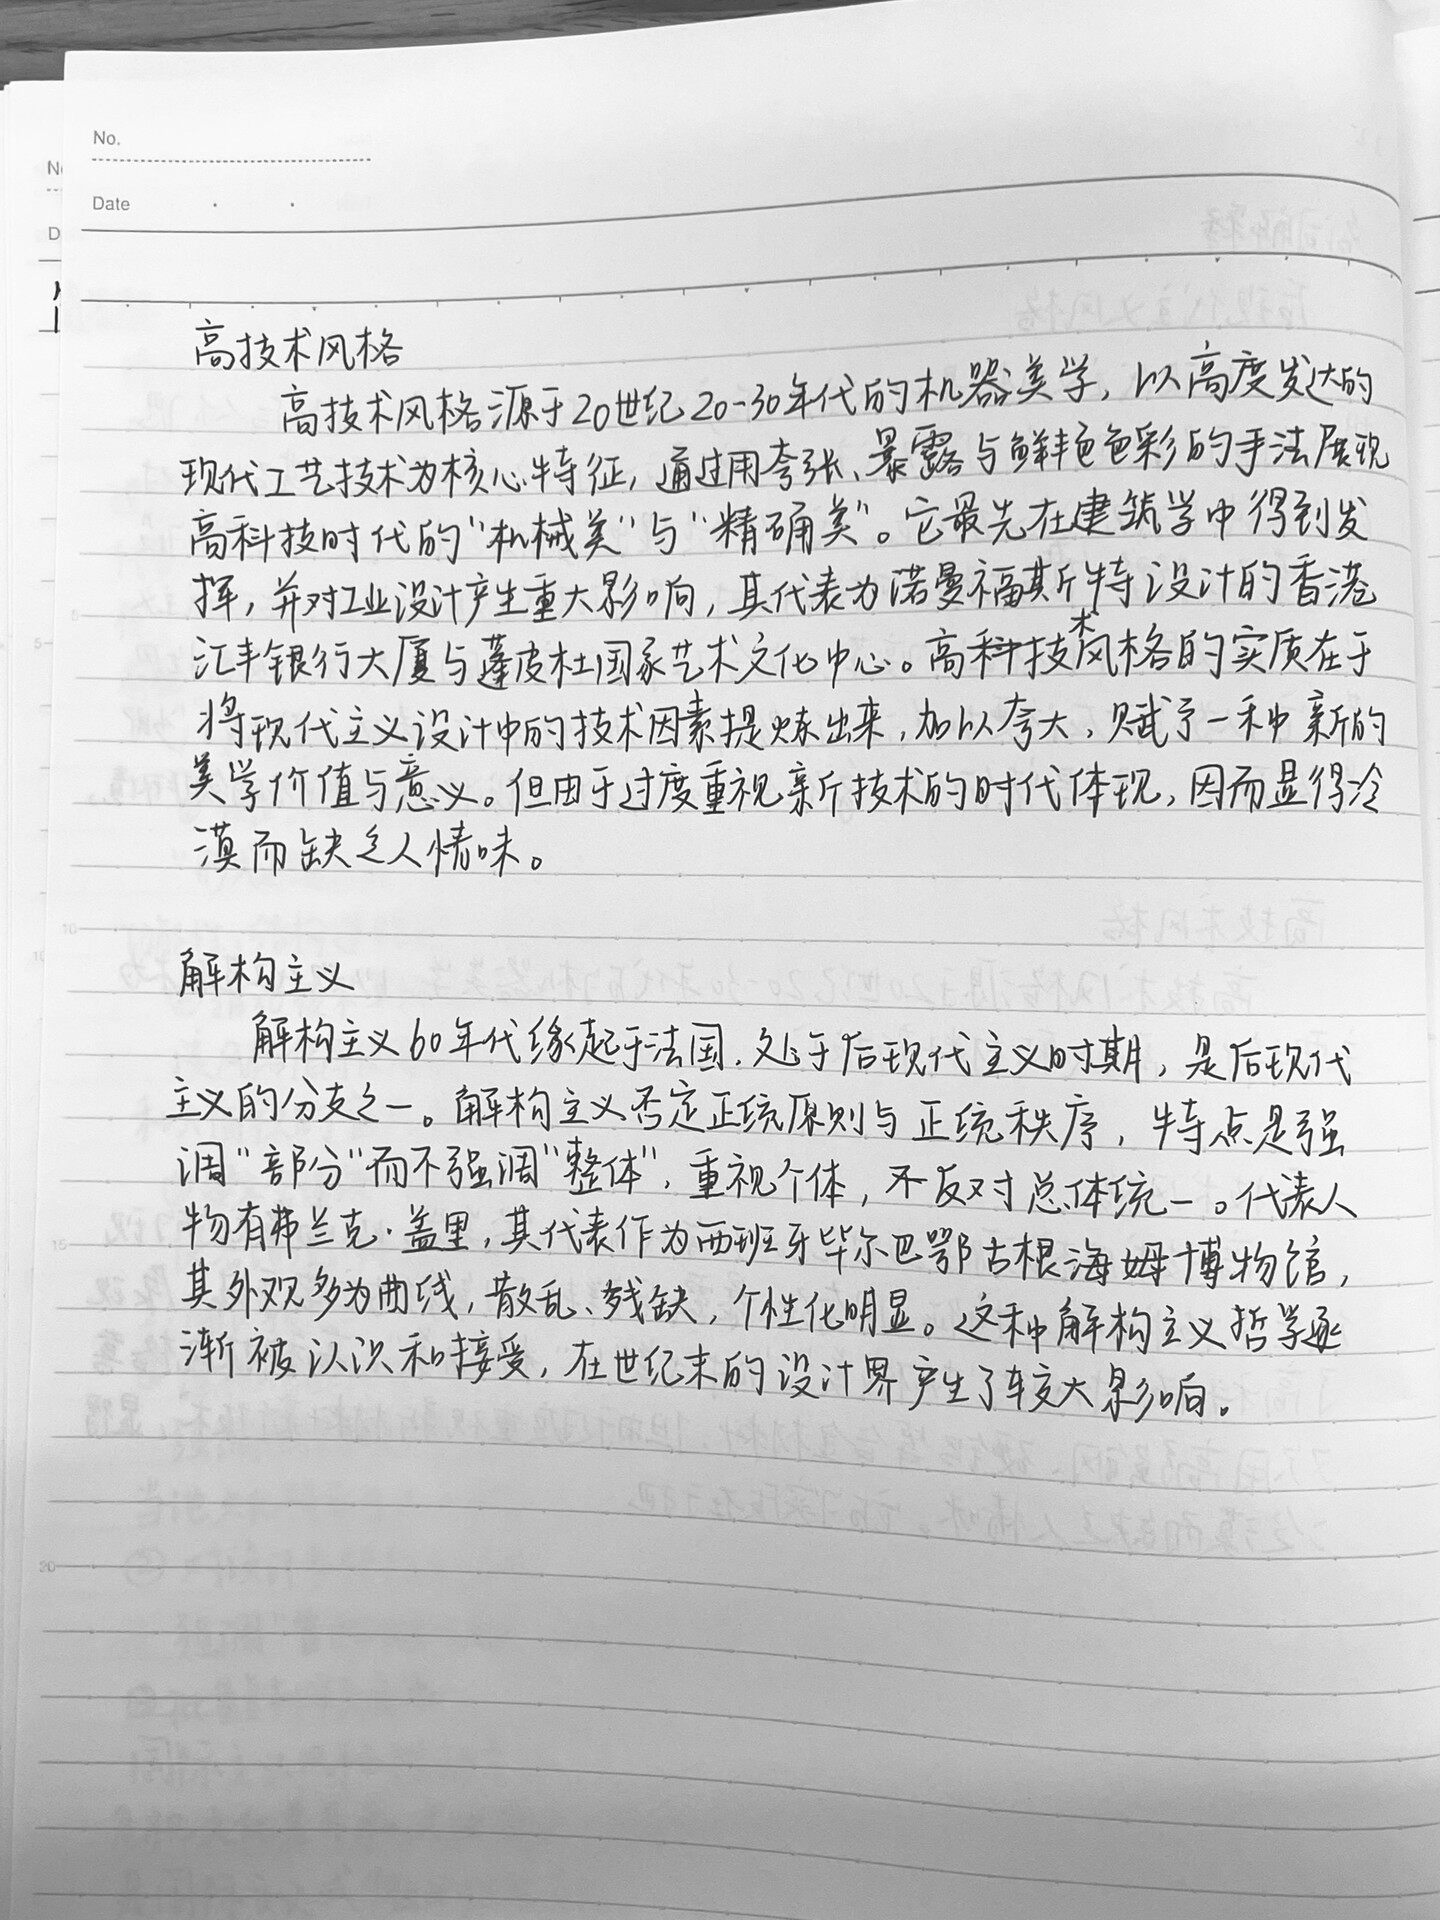 No.
Date
高技术风格
高技术风格源于20世纪20-30年代的机器美学，以高度发达的
现代工艺技术为核心特征，通过用夸张、暴露与鲜艳色彩的手法展现
高科技时代的“机械美”与“精确美”。它最先在建筑学中得到发
挥，并对工业设计产生重大影响，其代表为诺曼福斯特设计的香港
汇丰银行大厦与蓬皮杜国家艺术文化中心。高科技术风格的实质在于
将现代主义设计中的技术因素提炼出来，加以夸大，赋予一种新的
美学价值与意义。但由于过度重视新技术的时代体现，因而显得冷
漠而缺乏人情味。
解构主义
解构主义60年代缘起于法国，处于后现代主义时期，是后现代
主义的分支之一。解构主义否定正统原则与正统秩序，特点是强
调“部分”而不强调“整体”，重视个体，不反对总体统一。代表人
物有弗兰克·盖里，其代表作为西班牙毕尔巴鄂古根海姆博物馆，
其外观多为曲线，散乱、残缺，个性化明显。这种解构主义哲学逐
渐被认识和接受，在世纪末的设计界产生了较大影响。